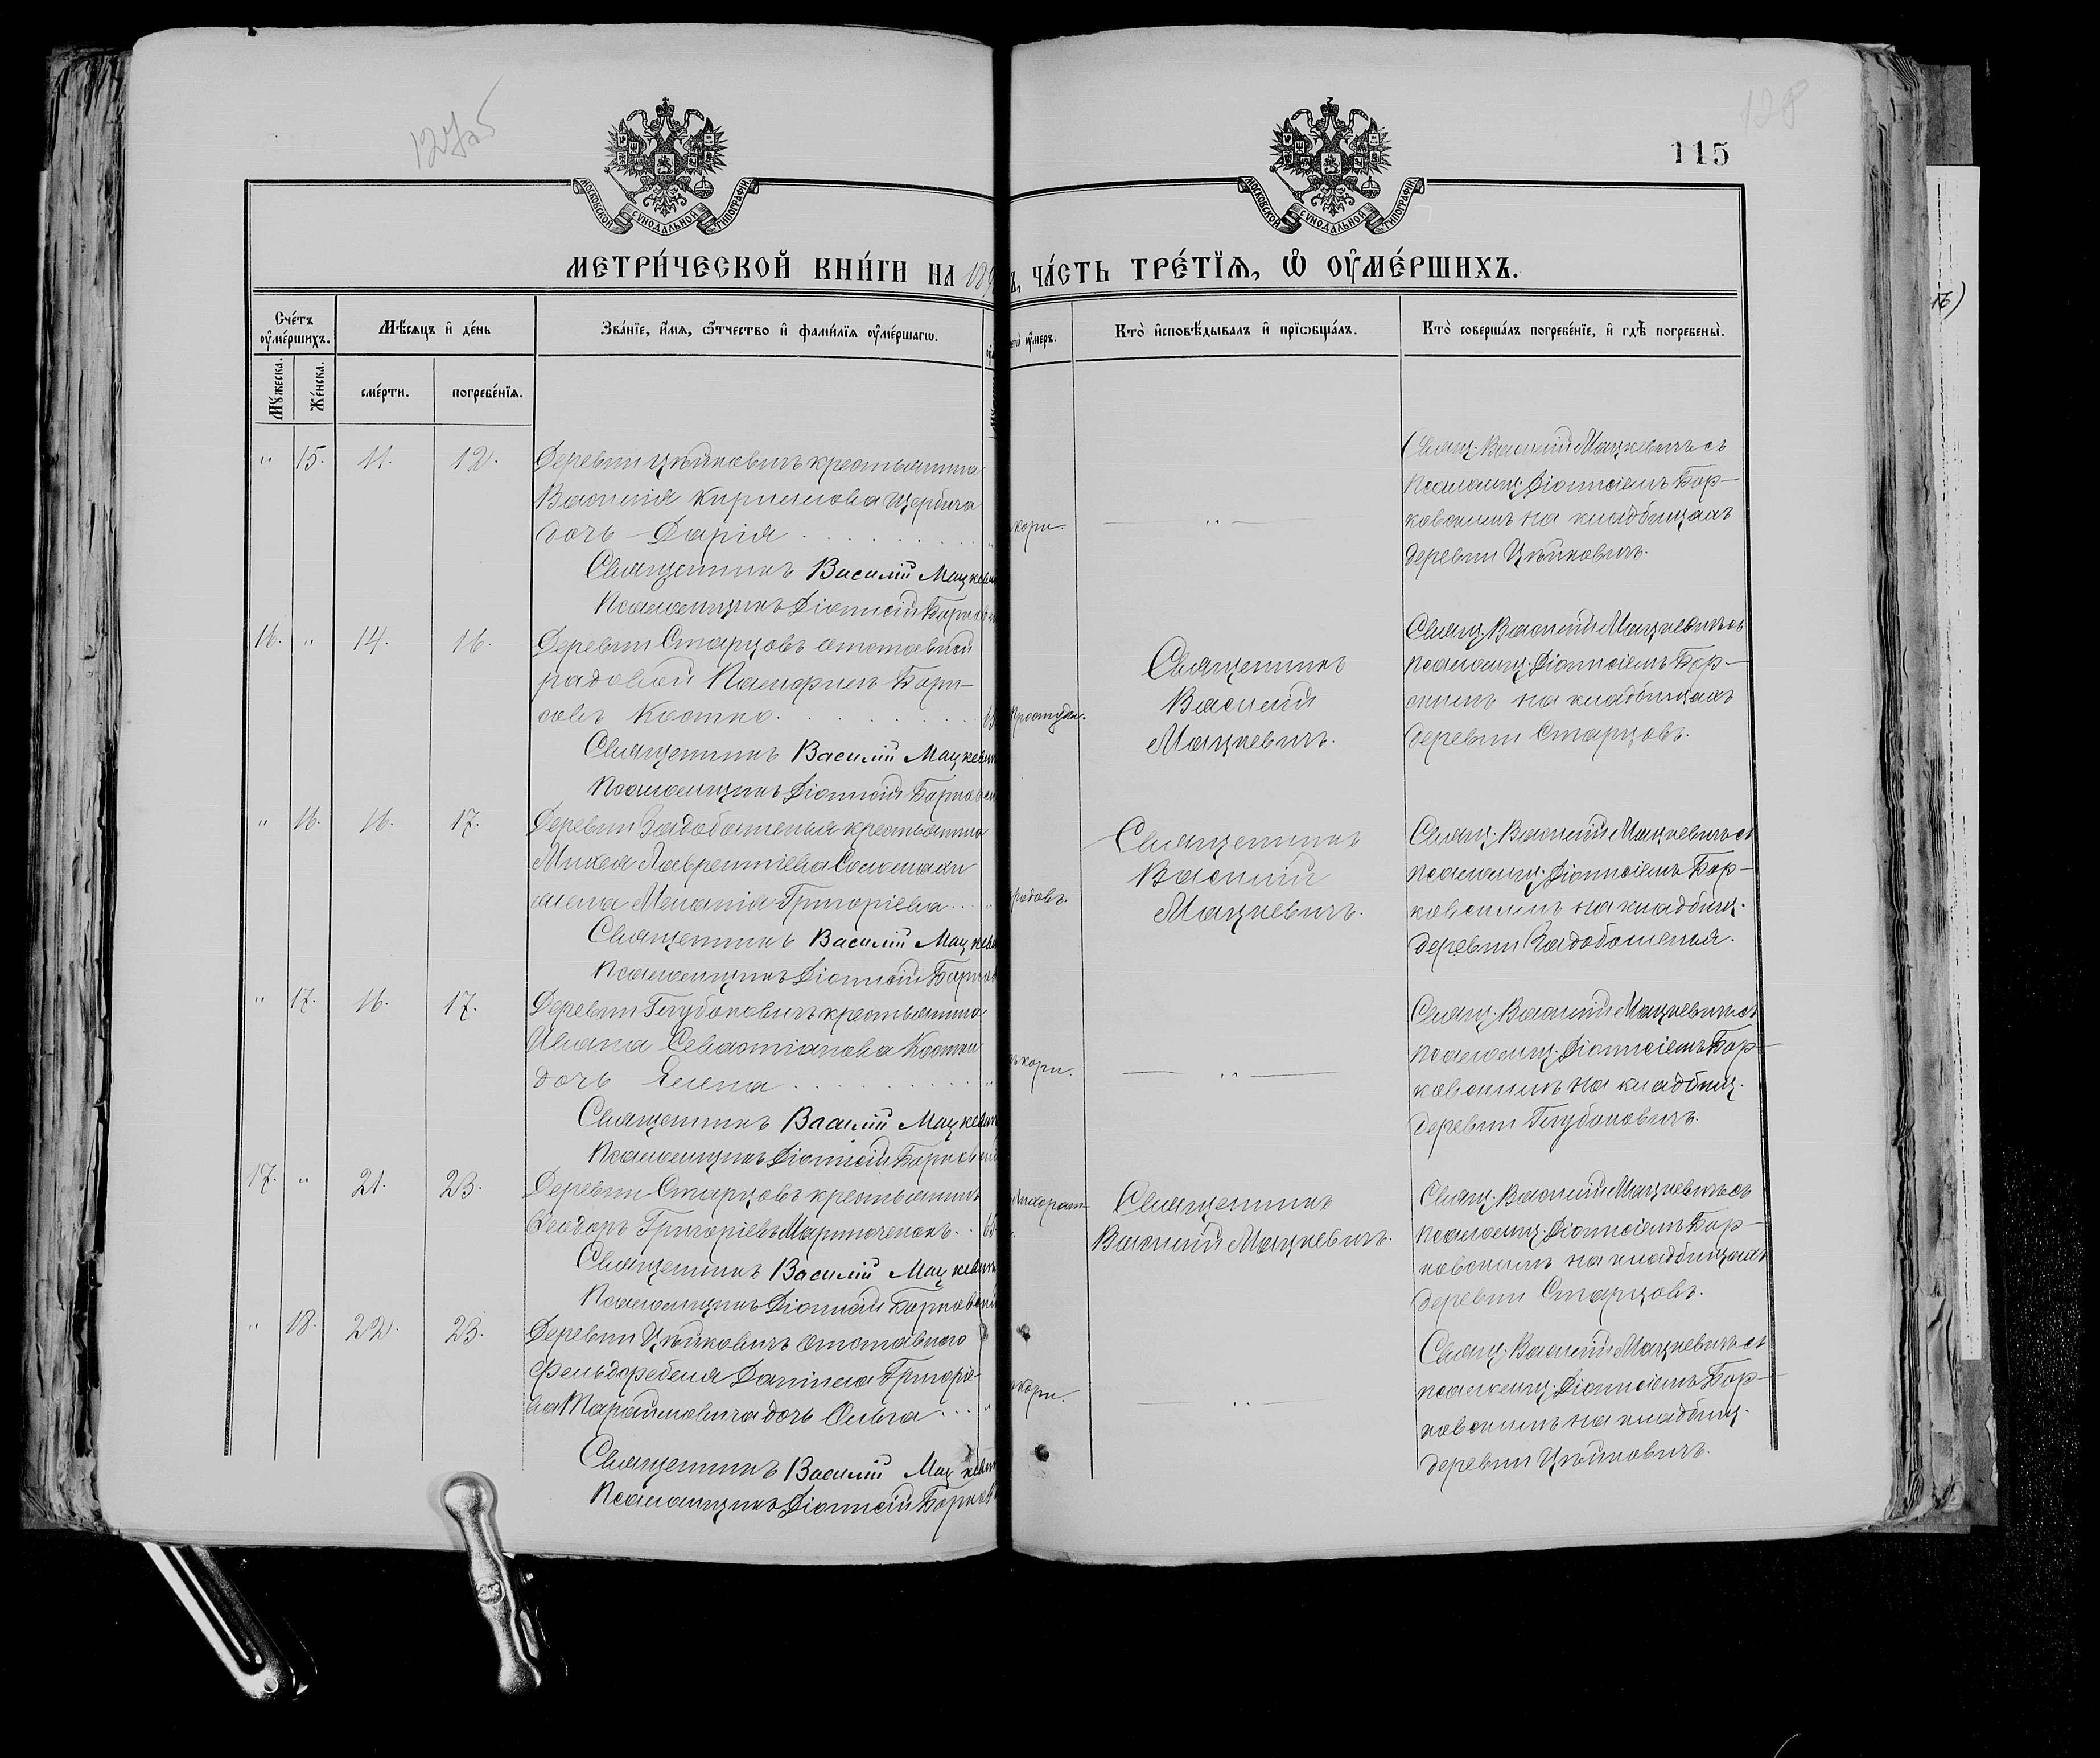 127об
128
115
МОСКОВСКОЙ СѴНОДАЛЬНОЙ ТИПОГРАФІИ
МОСКОВСКОЙ СѴНОДАЛЬНОЙ ТИПОГРАФІИ
МЕТРИ́ЧЕСКОЙ КНИ́ГИ НА 189
Ъ, ЧА́СТЬ ТРЕ́ТЇѦ, Ѡ҆ ОУ҆МЕ́РШИХЪ.
Сче́тъ оу҆ме́ршихъ.
Мѣ́сѧцъ и҆ де́нь
Зва́нїе, и҆́мѧ, ѻ҆́тчество и҆ фами́лїѧ оу҆ме́ршагѡ.
оу҆́меръ.
Кто̀ и҆сповѣ́дывалъ и҆ прїѡбща́лъ.
Кто̀ соверша́лъ погребе́нїе, и҆ гдѣ̀ погребены̀.
Мꙋ́жеска.
Же́нска.
сме́рти.
погребе́нїѧ.
" 15. 11. 12.
Деревни Цѣйковичъ крестьянина
Василія Кириллова Щербича
дочь Дарія
Священникъ Василій Мацкеви
Псаломщикъ Діонисій Борков
кори.
— " —
Свящ. Василій Мацкевичъ съ
псаломщ. Діонисіемъ Бор-
ковскимъ на кладбищахъ
деревни Цѣйковичъ.
16. " 14. 16.
Деревни Старцовъ отставной
рядовой Бори-
совъ Костко.
Священникъ Василій Мацкеви
Псаломщикъ Діонисій Борковск
простуды.
Священникъ
Василій
Мацкевичъ.
Свящ. Василій Мацкевичъ съ
псаломщ. Діонисіемъ Бор-
скимъ на кладбищахъ
деревни Старцовъ.
" 16. 16. 17.
Деревни Задобошенья крестьянина
Михея Лаврентіева
жена Меланія Григоріева
Священникъ Василій Мацкеви
Псаломщикъ Діонисій Борков
родовъ.
Священникъ
Василій
Мацкевичъ.
Свящ. Василій Мацкевичъ съ
псаломщ. Діонисіемъ Бор-
ковскимъ на кладбищ.
деревни Задобошенья.
" 17. 16. 17.
Деревни Глубоковичъ крестьянина
Ивана Севастіанова Костки
дочь Елена
Священникъ Василій Мацкеви
Псаломщикъ Діонисій Борковскій
кори.
— " —
Свящ. Василій Мацкевичъ съ
псаломщ. Діонисіемъ Бор-
ковскимъ на кладбищ.
деревни Глубоковичъ.
17. " 21. 23.
Деревни Старцовъ крестьянинъ
Ѳеодоръ Григорьевъ Мартюченокъ.
Священникъ Василій Мацкевичъ
Псаломщикъ Діонисій Борковскій
Священникъ
Василій Мацкевичъ.
Свящ. Василій Мацкевичъ съ
псаломщ. Діонисіемъ Бор-
ковскимъ на кладбищахъ
деревни Старцовъ.
" 18. 22. 23.
Деревни Цѣйковичъ отставного
фельдфебеля Даніила Григоріе-
ва дочь Ольга
Священникъ Василій Мацкеви
Псаломщикъ Діонисій Борков
кори.
— " —
Свящ. Василій Мацкевичъ съ
псаломщ. Діонисіемъ Бор-
ковскимъ на кладбищ.
деревни Цѣйковичъ.